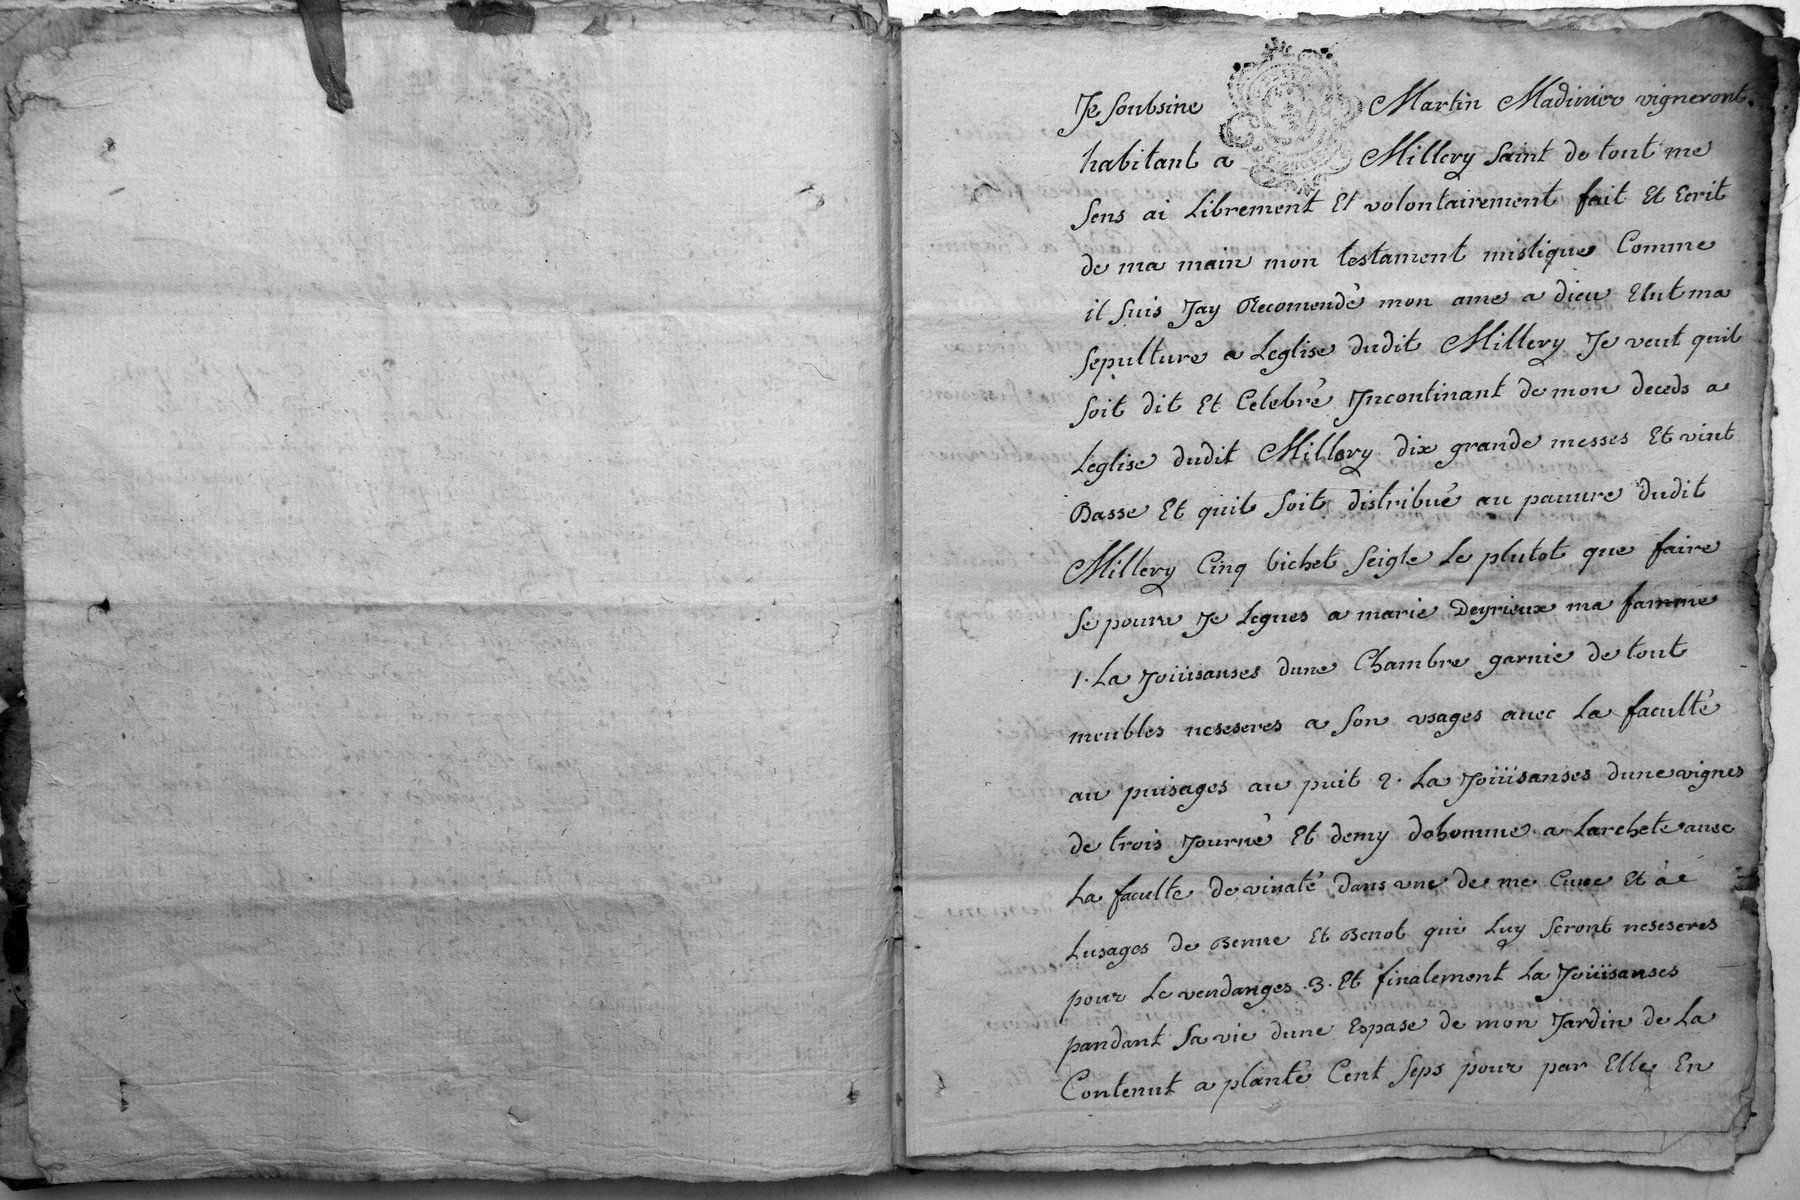 Je Soubsine Martin Madinier vigneront
habitant a Millery Saint de tout me
Sens ai Librement Et volontairement fait Et Ecrit
de ma main mon testament mistique Comme
il Suis Jay Recomendé mon ame a dieu Elut ma
Sepulture a Leglise dudit Millery Je veut quil
Soit dit Et Celebré Jncontinant de mon deceds a
Leglise dudit Millery dix grande messes Et vint
Basse Et quil Soit distribué au pauure dudit
Millery Cinq bichet Seigle Le plutot que faire
Se poura Je Legues a marie Deyrieux ma famme
1. La Joüisanses dune Chambre garnie de tout
meubles neseseres a Son vsages auec La faculté
au puisages au puit 2. La Joüisanses dune vignes
de trois Journé Et demy dohomme a Larchete auec
La faculte de vinaté dans vne de me Cuue Et a
Lusages de Benne Et Benot qui Luy Seront neseseres
pour Le vendanges .3. Et finalement La Joüisanses
pandant Sa vie dune Espase de mon Jardin de La
Contenut a planté Cent Seps pour par Elle En